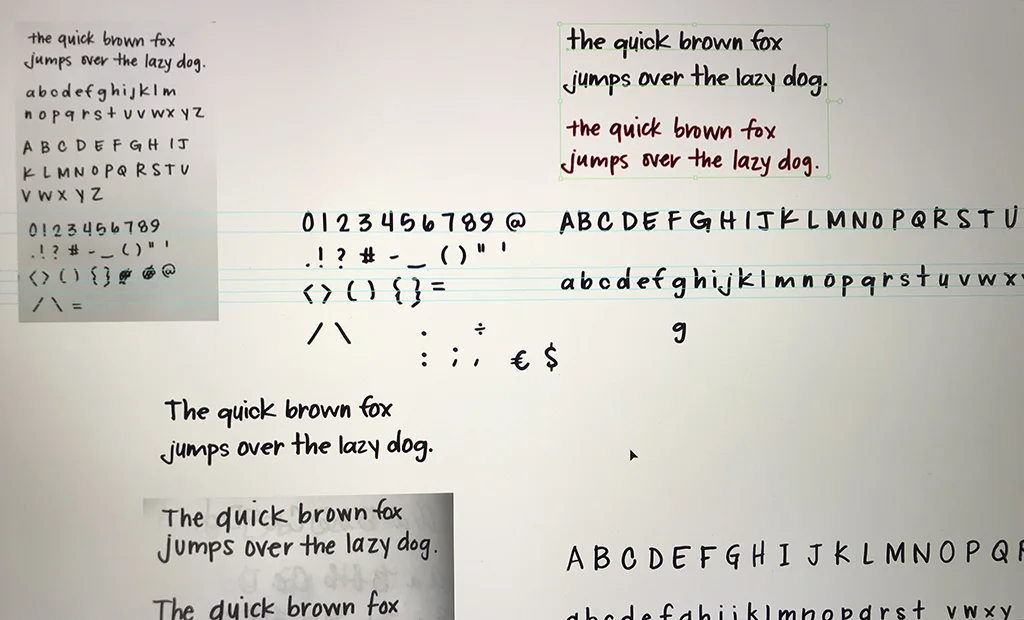 the quick brown fox
jumps over the lazy dog.
a b c d e f g h i j k l m
n o p q r s t u v w x y z
A B C D E F G H I J
K L M N O P Q R S T U
V W X Y Z
0 1 2 3 4 5 6 7 8 9
. ! ? # - _ ( ) " '
< > ( ) { } @
/ \ =
the quick brown fox
jumps over the lazy dog.
the quick brown fox
jumps over the lazy dog.
0 1 2 3 4 5 6 7 8 9 @
. ! ? # - _ ( ) " '
< > ( ) { } =
/ \ . ÷
: ; , € $
A B C D E F G H I J K L M N O P Q R S T U
a b c d e f g h i j k l m n o p q r s t u v w x
g
The quick brown fox
jumps over the lazy dog.
The quick brown fox
jumps over the lazy dog.
The quick brown fox
A B C D E F G H I J K L M N O P Q
a b c d e f g h i j k l m n o p q r s t v w x y